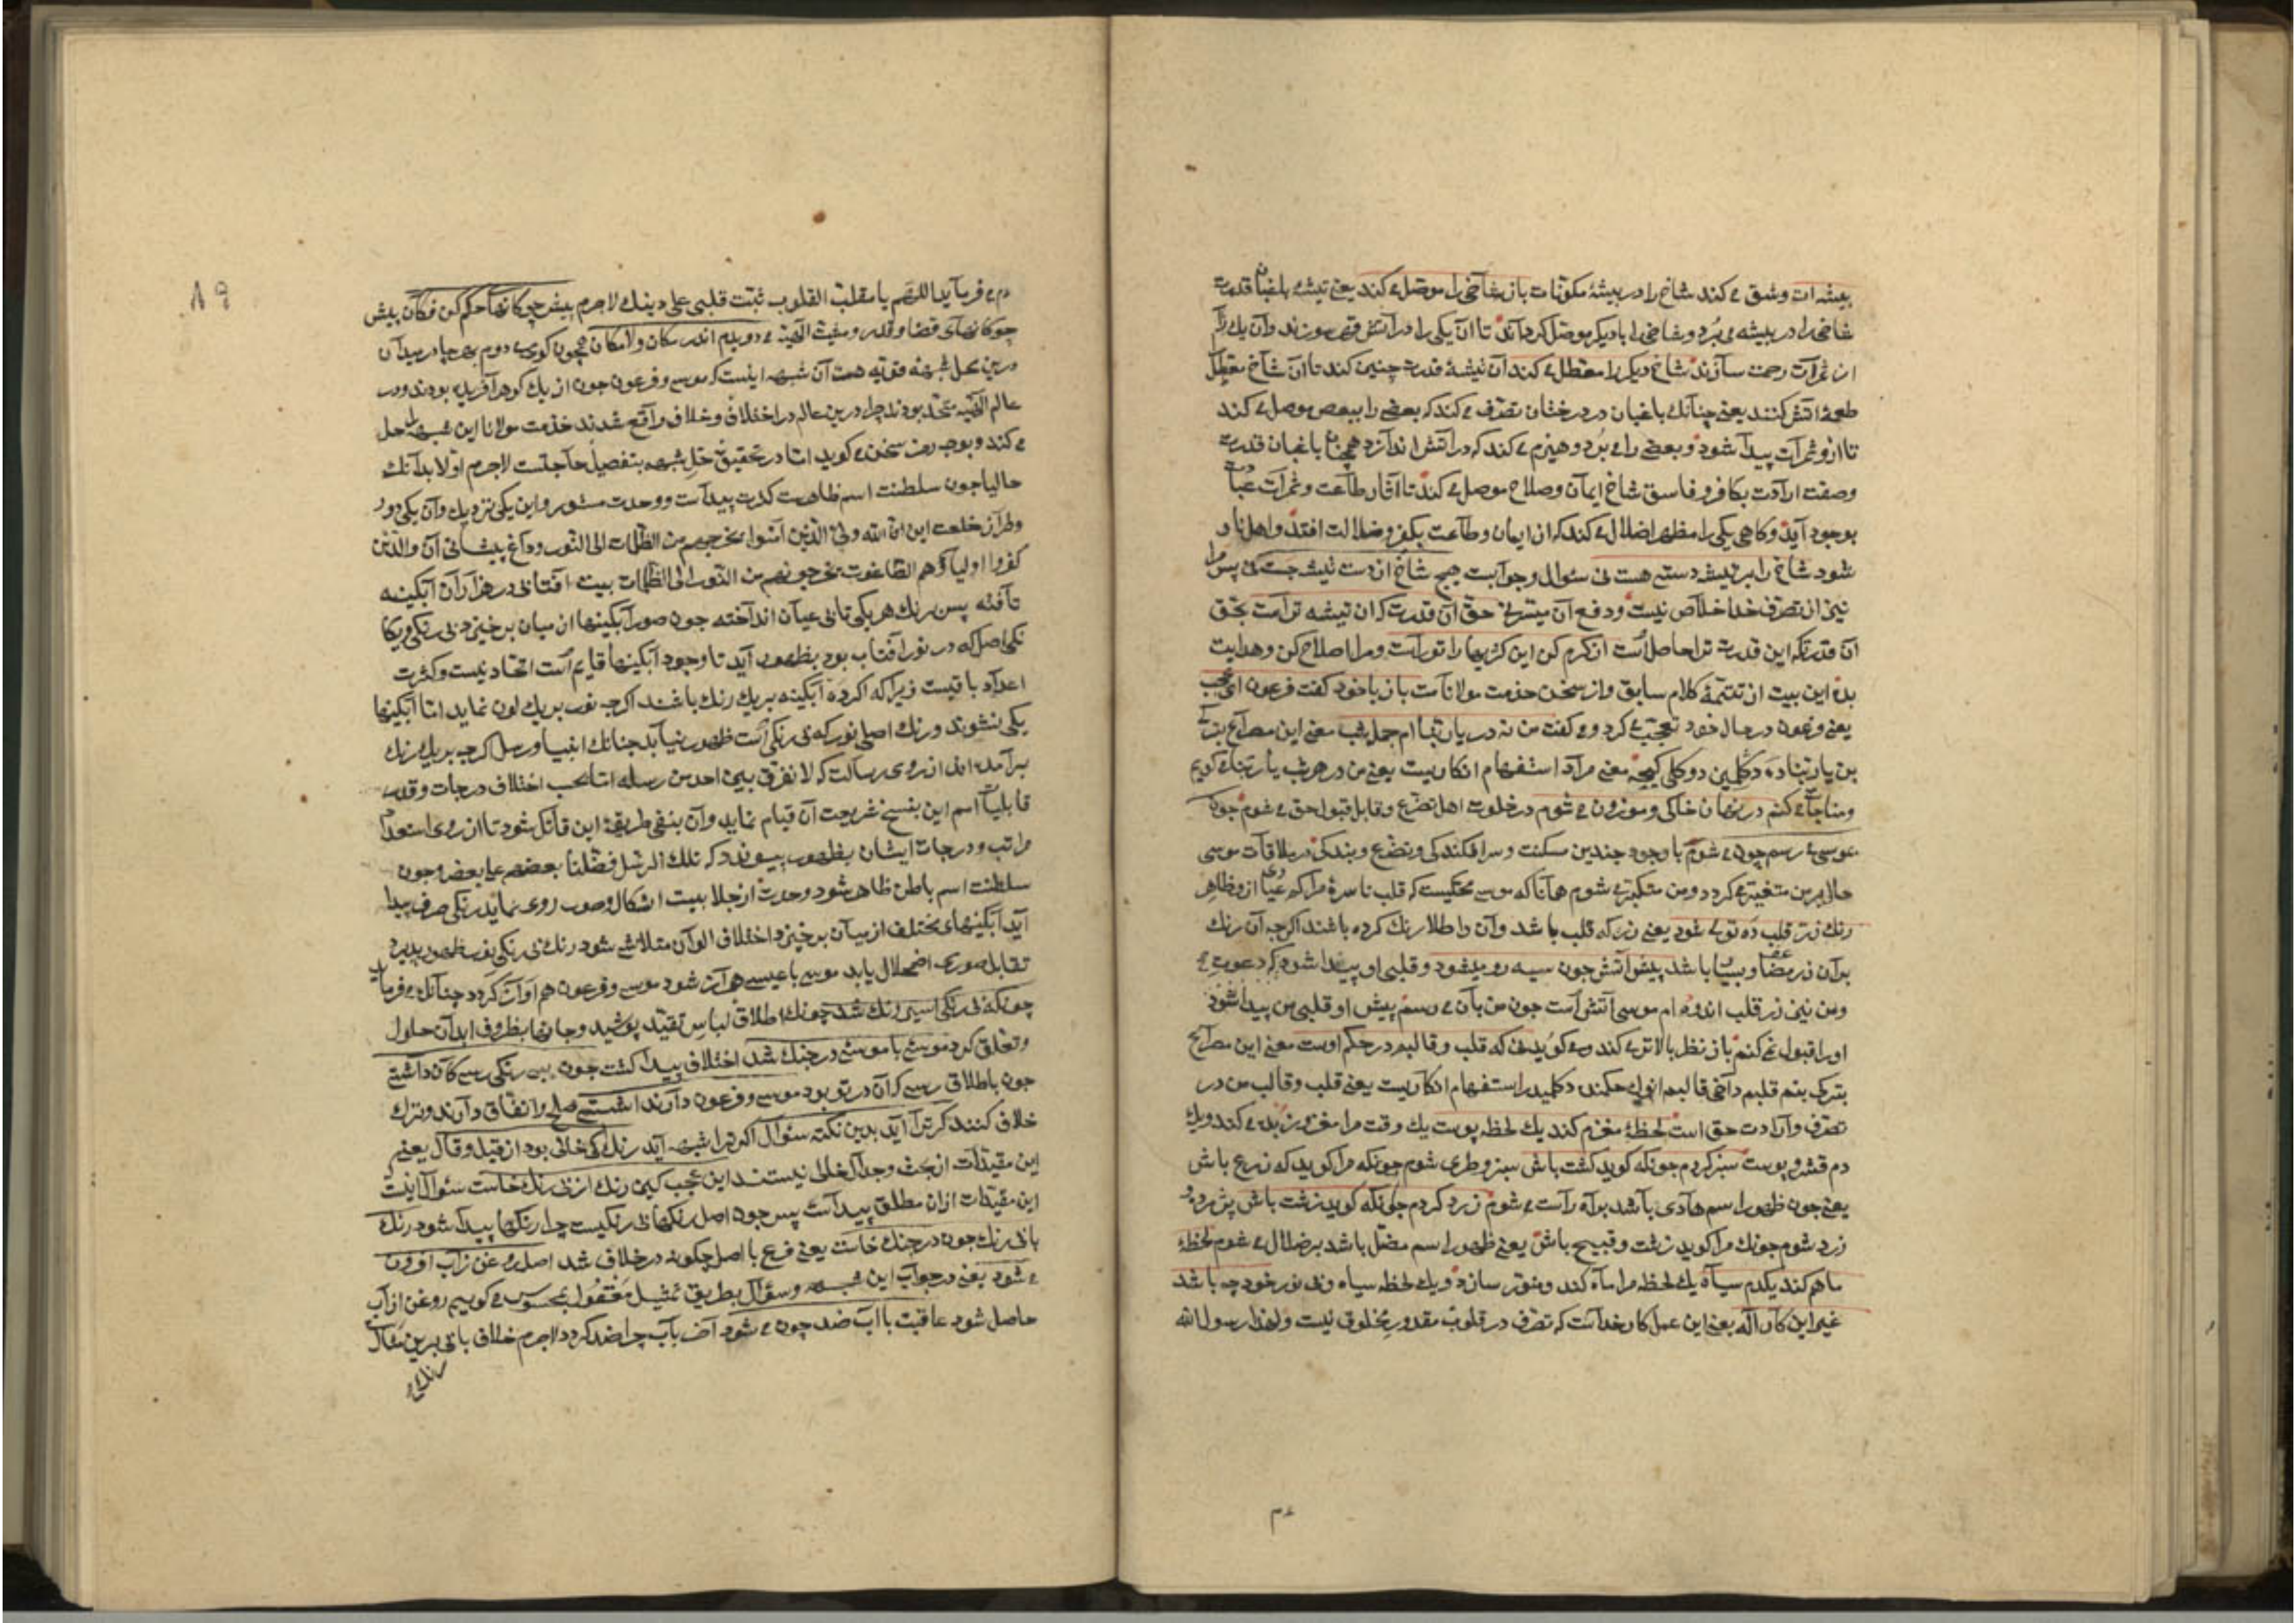 بیشه ات وشق می کند شاخ را در بیشهٔ مکونات باز شاخی را موصل می کند یعنی تیشهٔ باغبان قدرت
شاخی را در بیشه می برد و شاخی را با دیکر موصل کرداند تا آن یکی را در آتش قهر سوزند وآن یک را
از ثمرات رحمت سازند شاخ دیکر را معطل می کند آن تیشهٔ قدرت چنین کند تا آن شاخ معطل
طعمهٔ آتش کنند یعنی چنانک باغبان در درختان تصرف می کند که بعضی را ببعض موصل می کند
تا ازو ثمرات پیدا شود و بعضی را می برد و هیزم می کند که در آتش اندازد همچنان باغبان قدرت
وصفت ارادت بکافر و فاسق شاخ ایمان وصلاح موصل می کند تا آثار طاعت وثمرات
بوجود آید وکاهی یکی را مظهر اضلال می کند که از ایمان وطاعت بکفر وضلالت افتد واهل نار
شود شاخ را بر تیشه دستی هست نی سئوال وجوابست هیچ شاخ از دست تیشه جست نی پس مرا
نیز از تصرف خدا خلاص نیست ودفع آن میسر نی حق آن قدرت که آن تیشه تراست بحق
آن قدرتکه این قدرت ترا حاصل است از کرم کن این کژیها را تو راست ومرا اصلاح کن وهدایت
بده این بیت از تتمهٔ کلام سابق واز سخن حذمت مولاناست باز با خود کفت فرعون ای عجب
یعنی فرعون در حال خود تعجب می کرد و می کفت من نه در یا ربنا ام جمله شب معنی این مصراع
معنی مراد استفهام انکاریست یعنی من در هر شب یا ربنا می کویم
ومناجات می کنم در نهان خاکی وموزون می شوم در خلوت اهل تضرع وقابل قبول حق می شوم چون
بموسی می رسم چون می شوم با وجود چندین مسکنت وسرافکندکی وتضرع وبندکی در ملاقات موسی
حال بر من متغیر می کردد ومن متکبر می شوم همانا که موسی محکیست که قلب ناسرهٔ مرا که
رنک زر قلب ده توی شود یعنی زر که قلب باشد وآن را طلا رنک کرده باشند اکرچه آن رنک
باشد پیش آتش چون سیه رو میشود وقلبی او پیدا شود که دعوت می
ومن نیز زر قلب اندوده ام موسی آتش است چون من بآن می رسم پیش او قلبی من پیدا شود
او را قبول نمی کنم باز نظر بالاتر می کند و می کوید نی که قلب وقالبم در حکم اوست معنی این مصراع
استفهام انکاریست یعنی قلب وقالب من در
تصرف وارادت حق است لحظهٔ مغزم کند یک لحظه پوست یک وقت مرا مغز و زبده می کند ویک
دم قشر و پوست سبز کردم چونکه کوید کشت باش سبز وطری شوم چونکه مرا کوید که زرع باش
یعنی چون ظهور اسم هادی باشد براه راست می شوم زرد کردم چونکه کوید زشت باش پژمرده و
زرد شوم چونک مرا کوید زشت وقبیح باش یعنی ظهور اسم مضل باشد بر ضلال می شوم لحظهٔ
ماهم کند یکدم سیاه یک لحظه مرا ماه کند ومنور سازد ویک لحظه سیاه وبی نور خود چه باشد
غیر این کار اله یعنی این عمل کار خداست که تصرف در قلوب مقدور مخلوق نیست ولهذا رسول الله
٨٩
می فرماید اللهم یا مقلب القلوب ثبت قلبی علی دینک لاجرم پیش چوکانهای حکم کن فکان پیش
چوکانهای قضا وقدر ومشیت الهیه می دویم اندر مکان ولامکان همچون کوی می دویم بهر جا در میدان
درین محل شبههٔ قویه هست آن شبهه اینست که موسی و فرعون چون از یک کوهر آفریده بودند ودر
عالم الهیه متحد بودند چرا درین عالم در اختلاف وخلاف واقع شدند خذمت مولانا این شبهه را حل
می کند وبوجه رمز سخن می کوید اما در تحقیق حل شبهه بتفصیل حاجتست لاجرم اولا بدانک
حالیا چون سلطنت اسم ظاهرست کثرت پیداست ووحدت مستور واین یکی نزدیک وآن یکی دور
وطراز خلعت این ان الله ولی الذین آمنوا یخرجهم من الظلمات الی النور وداغ پیشانی آن والذین
کفروا اولیاؤهم الطاغوت یخرجونهم من النور الی الظلمات بیت آفتابی در هزاران آبکینه
تافته پس برنک هر یکی تابی عیان انداخته چون صور آبکینها از میان بر خیزد بی رنکی ویکا
نکی اصل که در نور آفتاب بود بظهور آید تا وجود آبکینها قایم است اتحاد نیست وکثرت
اعداد باقیست زیرا که اکر ده آبکینه بر یک رنک باشند اکرچه نور بر یک لون نماید اما آبکینها
یکی نشوند ورنک اصلی نور که بی رنکی است ظهور نیابد چنانک انبیا ورسل کرچه بر یک رنک
برآمده اند از روی رسالت که لا نفرق بین احد من رسله اما بحسب اختلاف درجات وقدر
قابلیات اسم این بنسخ شریعت آن قیام نماید وآن بنفی طریقهٔ این قائل شود تا از روی استعداد
مراتب ودرجات ایشان بظهور پیوندد که تلک الرسل فضلنا بعضهم علی بعض وچون
سلطنت اسم باطن ظاهر شود وحدت از جلابیب اشکال وصور روی نماید رنکی صرف پیدا
آید آبکینهای مختلف از میان بر خیزد اختلاف الوان متلاشی شود رنک بی رنکی نور ظهور پذیرد
تقابل صوری اضمحلال یابد موسی با عیسی همراز شود موسی وفرعون هم آواز کردد چنانک می فرماید
چونکه بی رنکی اسیر رنک شد چونک اطلاق لباس تقید پوشید وجانها بظروف ابدان حلول
وتعلق کرد موسی با موسی در جنک شد اختلاف پیدا کشت چون به بی رنکی رسی کان داشتی
چون باطلاق رسی که آن در تو بود موسی وفرعون دارند آشتی صلح واتفاق دارند وترک
خلاف کنند کر ترا آید بدین نکته سئوال اکر ترا شبهه آید رنک کی خالی بود از قیل وقال یعنی
این مقیدات از بحث وجدال خالی نیستند این عجب کین رنک از بی رنک خاست سئوال اینست
این مقیدات ازان مطلق پیداست پس چون اصل رنکها بی رنکیست چرا رنکها پیدا شود رنک
با بی رنک چون در جنک خاست یعنی فرع با اصل چکونه در خلاف شد اصل روغن ز آب افزون
می شود یعنی در جواب این شبهه وسؤال بطریق تمثیل بمحسوس می کوییم روغن از آب
حاصل شود عاقبت با آب ضد چون می شود آخر بآب چرا ضد کردد لاجرم خلاف باقی برین مثال